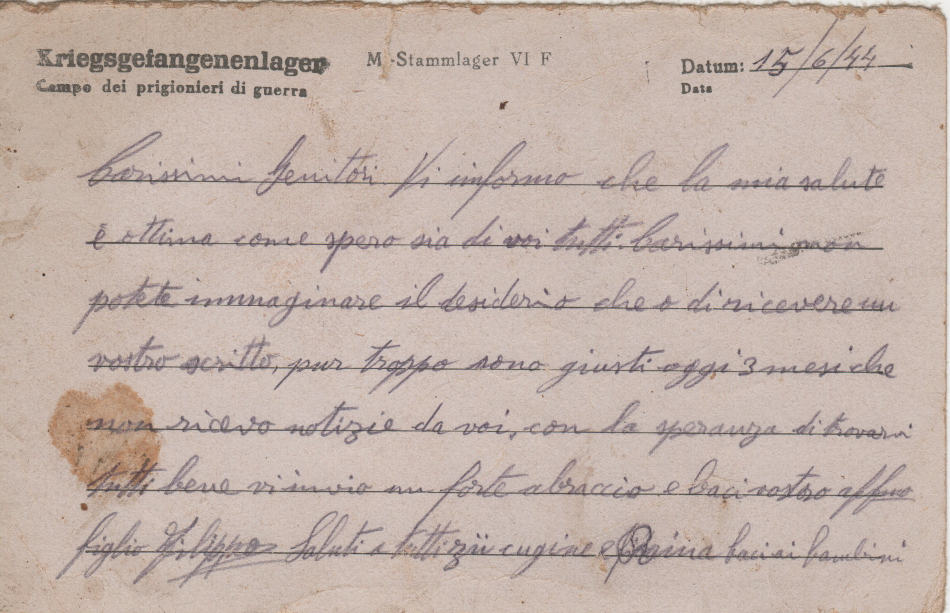 Kriegsgefangenenlager M.-Stammlager VI F Datum: 15/6/44
Campo dei prigionieri di guerra Data
Carissimi Genitori. Vi informo che la mia salute
è ottima come spero sia di voi tutti. Carissimi non
potete immaginare il desiderio che o di ricevere un
vostro scritto, pur troppo sono giusti oggi 3 mesi che
non ricevo notizie da voi, con la speranza di trovarvi
tutti bene vi invio un forte abraccio e baci vostro affmo
figlio Filippo Saluti a tutti zii cugine e baci ai bambini